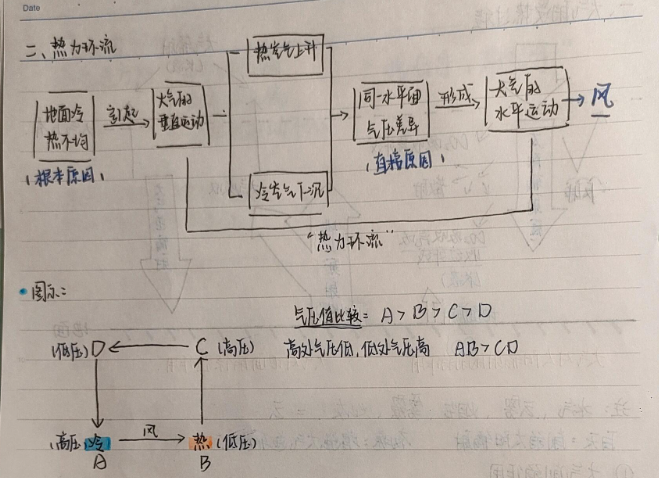 Date
二、热力环流
地面冷
热不均
(根本原因)
引起
大气的
垂直运动
热空气上升
冷空气下沉
同一水平面
气压差异
(直接原因)
形成
大气的
水平运动
风
"热力环流"
图示:
气压值比较: A > B > C > D
(低压) D C (高压) 高处气压低,低处气压高 AB > CD
(高压) 冷 风 热 (低压)
A B